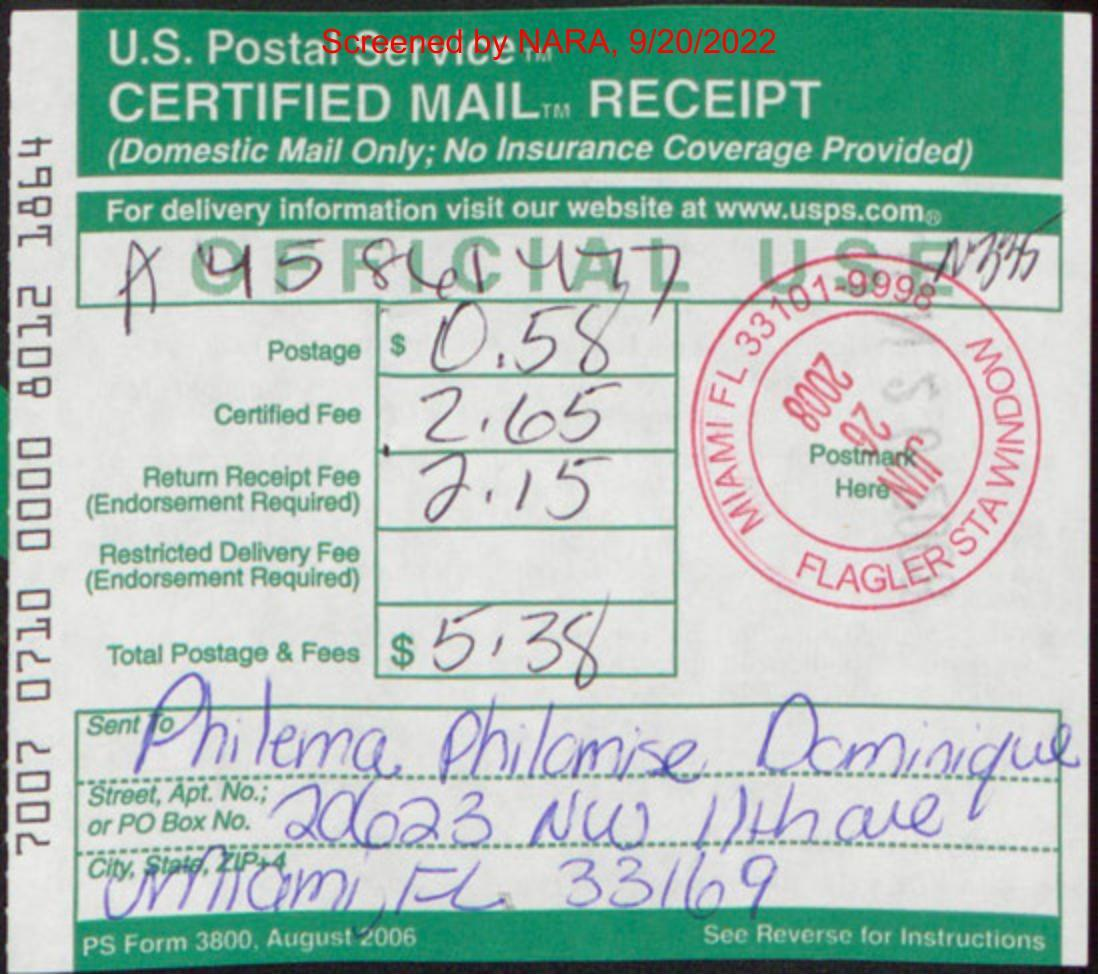 Screened by NARA, 9/20/2022
U.S. Postal Service™
CERTIFIED MAIL™ RECEIPT
(Domestic Mail Only; No Insurance Coverage Provided)
For delivery information visit our website at www.usps.com®
OFFICIAL USE
A 45 861 477
Postage $ 0.58
Certified Fee 2.65
Return Receipt Fee 2.15
(Endorsement Required)
Restricted Delivery Fee
(Endorsement Required)
Total Postage & Fees $ 5.38
MIAMI FL 33101-9998
FLAGLER STA WINDOW
JUN 26 2008
Postmark
Here
Sent To Philema Philomise Dominique
Street, Apt. No.;
or PO Box No. 20623 NW 11th ave
City, State, ZIP+4 Miami, FL. 33169
PS Form 3800, August 2006 See Reverse for Instructions
7007 0710 0000 8012 1864